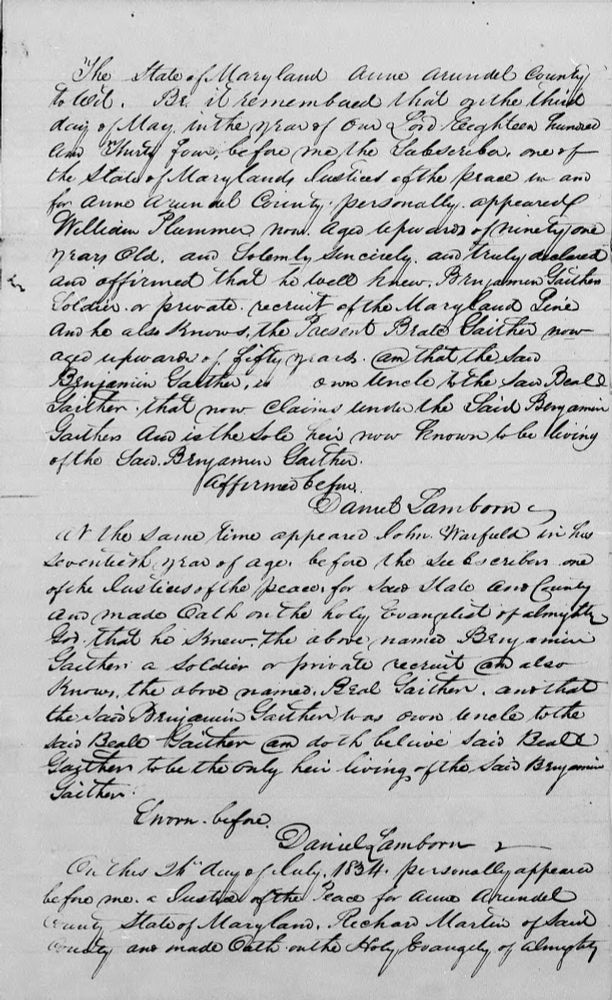 The State of Maryland Anne Arundel County
to wit. Be it remembered that on the third
day of May in the year of our Lord Eeighteen hundred
and Thirty four, before me the Subscriber, one of
the State of Maryland, Justices of the peace in and
for Anne Arundel County personally appeared
William Plummer now aged upwards of ninety one
years Old, and Solemly sincerely and truly declared
and affirmed that he well knew, Benjamin Gaither
Soldier or private recruit of the Maryland Line
And he also Knows, the Present Beale Gaither now
aged upwards of fifty years. an that the said
Benjamin Gaither, is own Uncle to the Said Beall
Gaither that now Claims under the Said Benjamin
Gaither And is the Sole heir now Known to be living
of the Said Benjamin Gaither.
Affirmed before
Daniel Lamborn
At the same time appeared John Warfield in his
Seventieth year of age, before the Subscriber one
of the Justices of the peace, for Said State and County
and made Oath on the holy Evangelist of almighty
God that he Knew the above named Benjamin
Gaither a Soldier or private recruit an also
Knows, the above named, Beal Gaither, and that
the Said Benjamin Gaither was own Uncle to the
said Beale Gaither an doth believe Said Beall
Gaither to be the only heir living of the Said Benjamin
Gaither.
Sworn before
Daniel Lamborn
On this day of July, 1834. personally appeared
before me a Justice of the Peace for Anne Arundel
County State of Maryland, Richard Martin of Said
County and made Oath on the Holy Evangely of Almighty